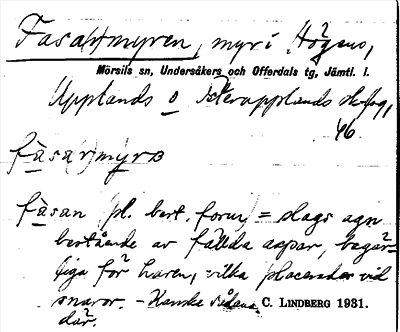 Fasa(n)myren, myr i Högens,
Mörsils sn, Undersåkers och Offerdals tg, Jämtl. l.
Upplands o Västerupplands skifteslag,
46
fàsa(n)myrə
fàsan (pl. best. form) = slags agn
bestående av fällda aspar, begär-
liga för haren, vilka placerades vid
snaror. – Kanske sådana C. LINDBERG 1931.
där.